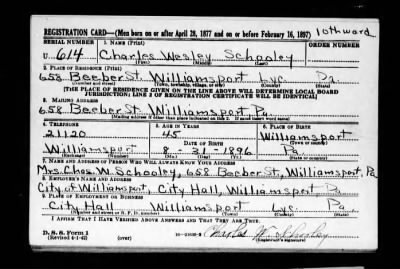 REGISTRATION CARD—(Men born on or after April 28, 1877 and on or before February 16, 1897) 10th ward
SERIAL NUMBER 1. NAME (Print) ORDER NUMBER
U 614 Charles Wesley Schooley
(First) (Middle) (Last)
2. PLACE OF RESIDENCE (Print)
658 Beeber St. Williamsport Lyc. Pa.
(Number and street) (Town, township, village, or city) (County) (State)
[THE PLACE OF RESIDENCE GIVEN ON THE LINE ABOVE WILL DETERMINE LOCAL BOARD
JURISDICTION; LINE 2 OF REGISTRATION CERTIFICATE WILL BE IDENTICAL]
3. MAILING ADDRESS
658 Beeber St. Williamsport Pa.
[Mailing address if other than place indicated on line 2. If same insert word same]
4. TELEPHONE 5. AGE IN YEARS 6. PLACE OF BIRTH
21120 45 Williamsport
DATE OF BIRTH (Town or county)
Williamsport 8 - 31 - 1896 Pa.
(Exchange) (Number) (Mo.) (Day) (Yr.) (State or country)
7. NAME AND ADDRESS OF PERSON WHO WILL ALWAYS KNOW YOUR ADDRESS
Mrs. Chas. W. Schooley, 658 Beeber St, Williamsport, Pa.
8. EMPLOYER'S NAME AND ADDRESS
City of Williamsport, City Hall, Williamsport Pa.
9. PLACE OF EMPLOYMENT OR BUSINESS
City Hall Williamsport Lyc. Pa.
(Number and street or R. F. D. number) (Town) (County) (State)
I AFFIRM THAT I HAVE VERIFIED ABOVE ANSWERS AND THAT THEY ARE TRUE.
D. S. S. Form 1
(Revised 4-1-42) (over) Charles W. Schooley
(Registrant's signature)